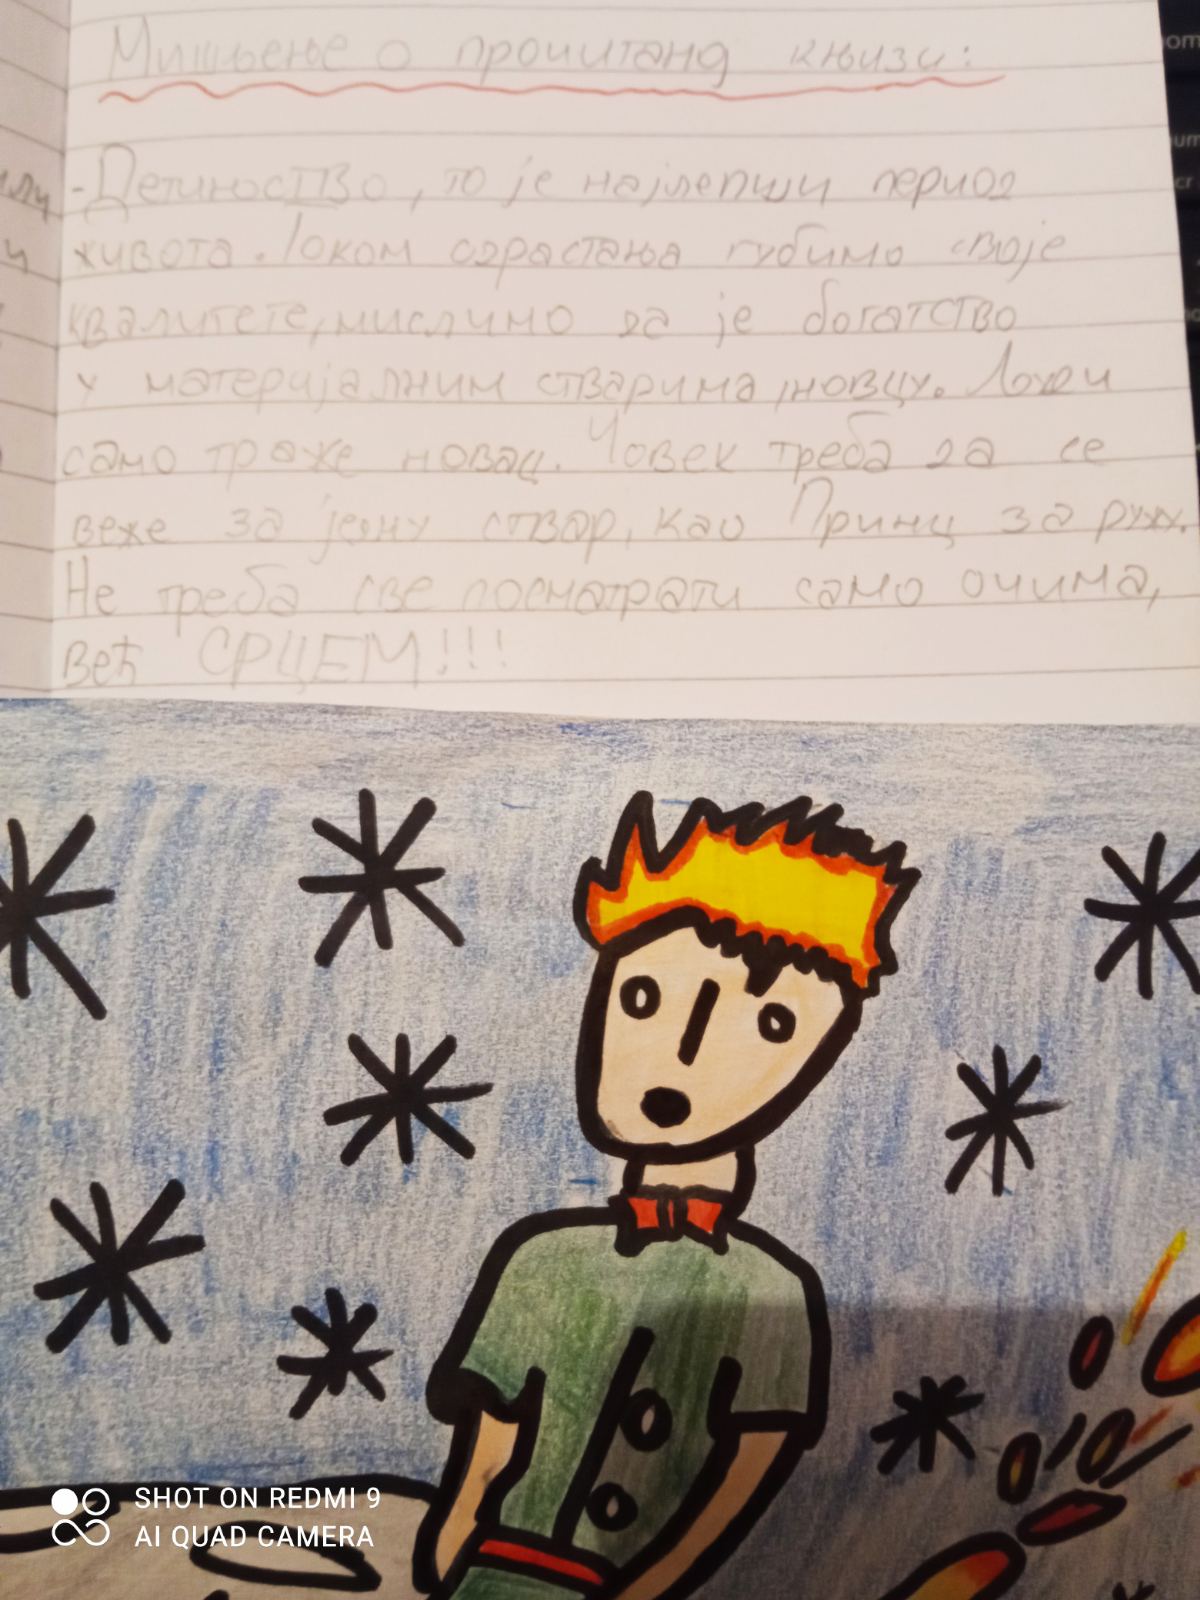 Мишљење о прочитаној књизи:
-Детињство, то је најлепши период
живота. Током одрастања губимо своје
квалитете, мислимо да је богатство
у материјалним стварима, новцу. Људи
само траже новац. Човек треба да се
веже за једну ствар, као Принц за ружу.
Не треба све посматрати само очима,
већ СРЦЕМ!!!
SHOT ON REDMI 9
AI QUAD CAMERA